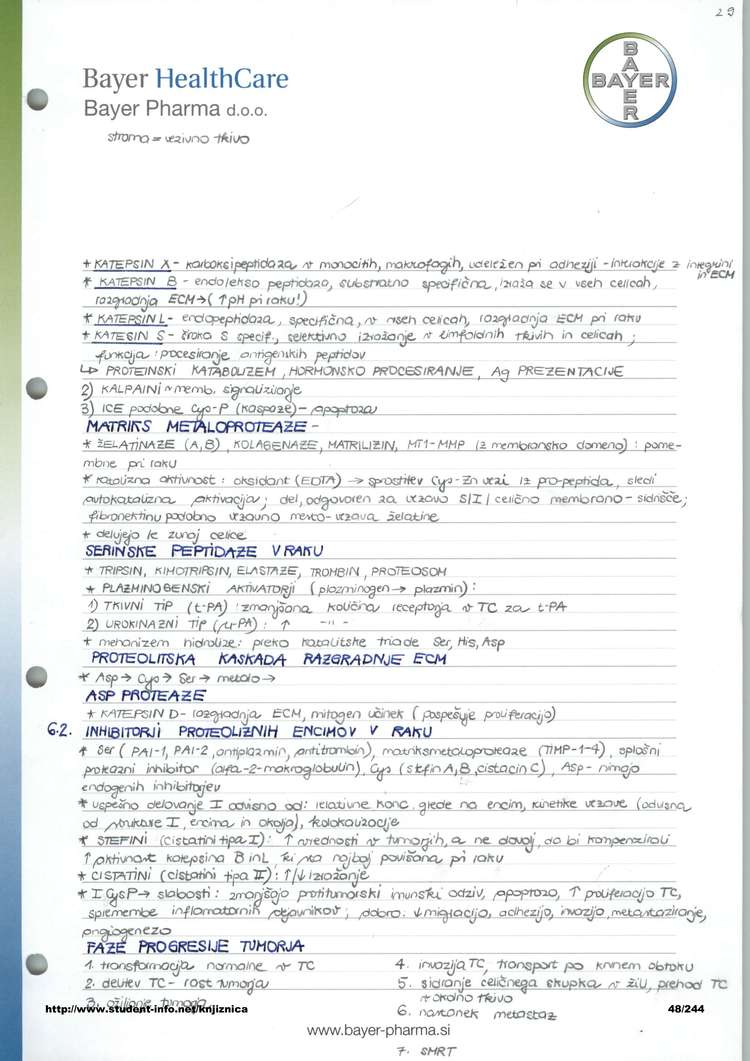 29
Bayer HealthCare
Bayer Pharma d.o.o.
BAYER
BAYER
stroma = vezivno tkivo
* KATEPSIN X - karboksipeptidaza v monocitih, makrofagih, udeležen pri adheziji - interakcije z integrini
in ECM
* KATEPSIN B - endo/ekso peptidaza, substratno specifična, izraža se v vseh celicah,
razgradnja ECM → (↑pH pri raku!)
* KATEPSIN L - endopeptidaza, specifična, v vseh celicah, razgradnja ECM pri raku
* KATEPSIN S - široka S specif., selektivno izražanje v limfoidnih tkivih in celicah;
funkcija: procesiranje antigenskih peptidov
↳ PROTEINSKI KATABOLIZEM, HORMONSKO PROCESIRANJE, Ag PREZENTACIJE
2) KALPAINI ~ memb. signaliziranje
3) ICE podobne Cys-P (kaspaze) - apoptoza
MATRIKS METALOPROTEAZE -
* ŽELATINAZE (A, B), KOLAGENAZE, MATRILIZIN, MT1-MMP (z membransko domeno): pome-
mbne pri raku
* katalizna aktivnost: oksidant (EDTA) → sprostitev Cys-Zn vezi iz pro-peptida, sledi
avtokatalizna aktivacija; del, odgovoren za vezavo S/I/celično membrano - sidrišče;
fibronektinu podobno vezavno mesto - vezava želatine
* delujejo le zunaj celice
SERINSKE PEPTIDAZE V RAKU
* TRIPSIN, KIMOTRIPSIN, ELASTAZE, TROMBIN, PROTEOSOM
* PLAZMINOGENSKI AKTIVATORJI (plazminogen → plazmin):
1) TKIVNI TIP (t-PA): zmanjšana količina receptorja v TC za t-PA
2) UROKINAZNI TIP (u-PA): ↑ -"-
* mehanizem hidrolize: preko katalitske triade Ser, His, Asp
PROTEOLITSKA KASKADA RAZGRADNJE ECM
* Asp → Cys → Ser → metalo →
ASP PROTEAZE
* KATEPSIN D - razgradnja ECM, mitogen učinek (pospešuje proliferacijo)
6.2. INHIBITORJI PROTEOLIZNIH ENCIMOV V RAKU
* Ser (PAI-1, PAI-2, antiplazmin, antitrombin), matriksmetaloproteaze (TIMP-1-4), splošni
proteazni inhibitor (alfa-2-makroglobulin), Cys (stefin A, B, cistacin C), Asp - nimajo
endogenih inhibitorjev
* uspešno delovanje I odvisno od: relativne konc. glede na encim, kinetike vezave (odvisna
od strukture I, encima in okolja), kolokalizacije
* STEFINI (cistatini tipa I): ↑ vrednosti v tumorjih, a ne dovolj, da bi kompenzirali
↑ aktivnost katepsina B in L, ki sta najbolj povišana pri raku
* CISTATINI (cistatini tipa II): ↑/↓ izražanje
* I CysP → slabosti: zmanjšajo protitumorski imunski odziv, apoptozo, ↑ proliferacijo TC,
spremembe inflamatornih dejavnikov; dobro: ↓ migracijo, adhezijo, invazijo, metastaziranje,
angiogenezo
FAZE PROGRESIJE TUMORJA
1. transformacija normalne v TC
2. delitev TC - rast tumorja
3. ožiljanje tumorja
4. invazija TC, transport po krvnem obtoku
5. sidranje celičnega skupka v žilu, prehod TC
v okolno tkivo
6. nastanek metastaz
7. SMRT
http://www.student-info.net/knjiznica
48/244
www.bayer-pharma.si